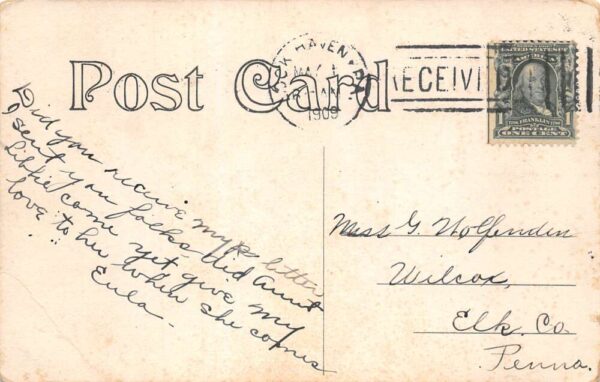 Post Card
LOCK HAVEN, PA.
MAY
1909
RECEIVE
UNITED STATES
FRANKLIN
POSTAGE
ONE CENT
Did you receive my letter
I sent you folks. Did Aunt
Libbie come yet, give my
love to her when she comes
Eula.
Miss G. Wolfenden
Wilcox,
Elk. Co.
Penna.